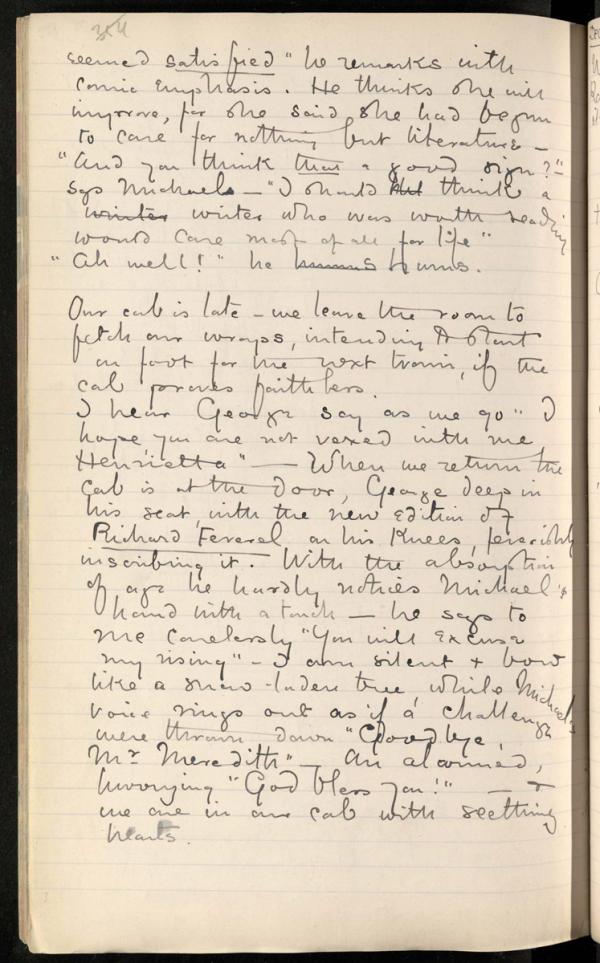 354
seemed satisfied" he remarks with
comic emphasis. He thinks she will
improve, for she said she had begun
to care for nothing but literature —
"And you think that a good sign?"
says Michael — "I should think a
winter writer who was worth reading
would care most of all for life"
"Ah well!" he hums.
Our cab is late — we leave the room to
fetch our wraps, intending to start
on foot for the next train, if the
cab proves faithless.
I hear George say as we go "I
hope you are not vexed with me
Henrietta" — When we return the
cab is at the door, George deep in
his seat, with the new edition of
Richard Feverel on his knees, feverishly
inscribing it. With the absorption
of age he hardly notices Michael's
hand with a touch — he says to
me carelessly "You will excuse
my rising" — I am silent + bow
like a snow-laden tree, while Michael's
voice rings out as if a challenge
were thrown down "Goodbye,
Mr Meredith" — An alarmed,
hurrying "God bless you!" — +
we are in our cab with seething
hearts.